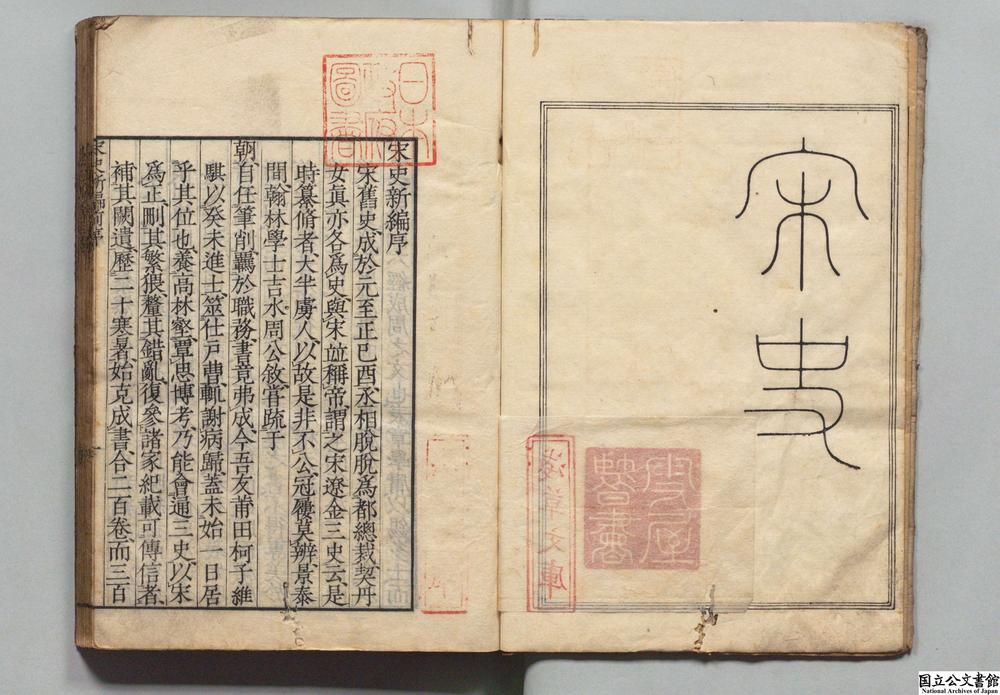 宋史
宋史新編序
宋舊史成於元至正己酉丞相脫脫爲都總裁契丹
女眞亦各爲史與宋並稱帝謂之宋遼金三史云是
時纂脩者大半虜人以故是非不公冠屨莫辨景泰
間翰林學士吉水周公敘官疏于
朝自任筆削羈於職務書竟弗成今吾友莆田柯子維
騏以癸未進士筮仕戶曹輒謝病歸蓋未始一日居
乎其位也養高林壑覃思博考乃能會通三史以宋
爲正刪其繁猥釐其錯亂復參諸家紀載可傳信者
補其闕遺歷二十寒暑始克成書合二百卷而三百
宋史新編序
日本
政府
圖書
文庫
國立公文書館
National Archives of Japan